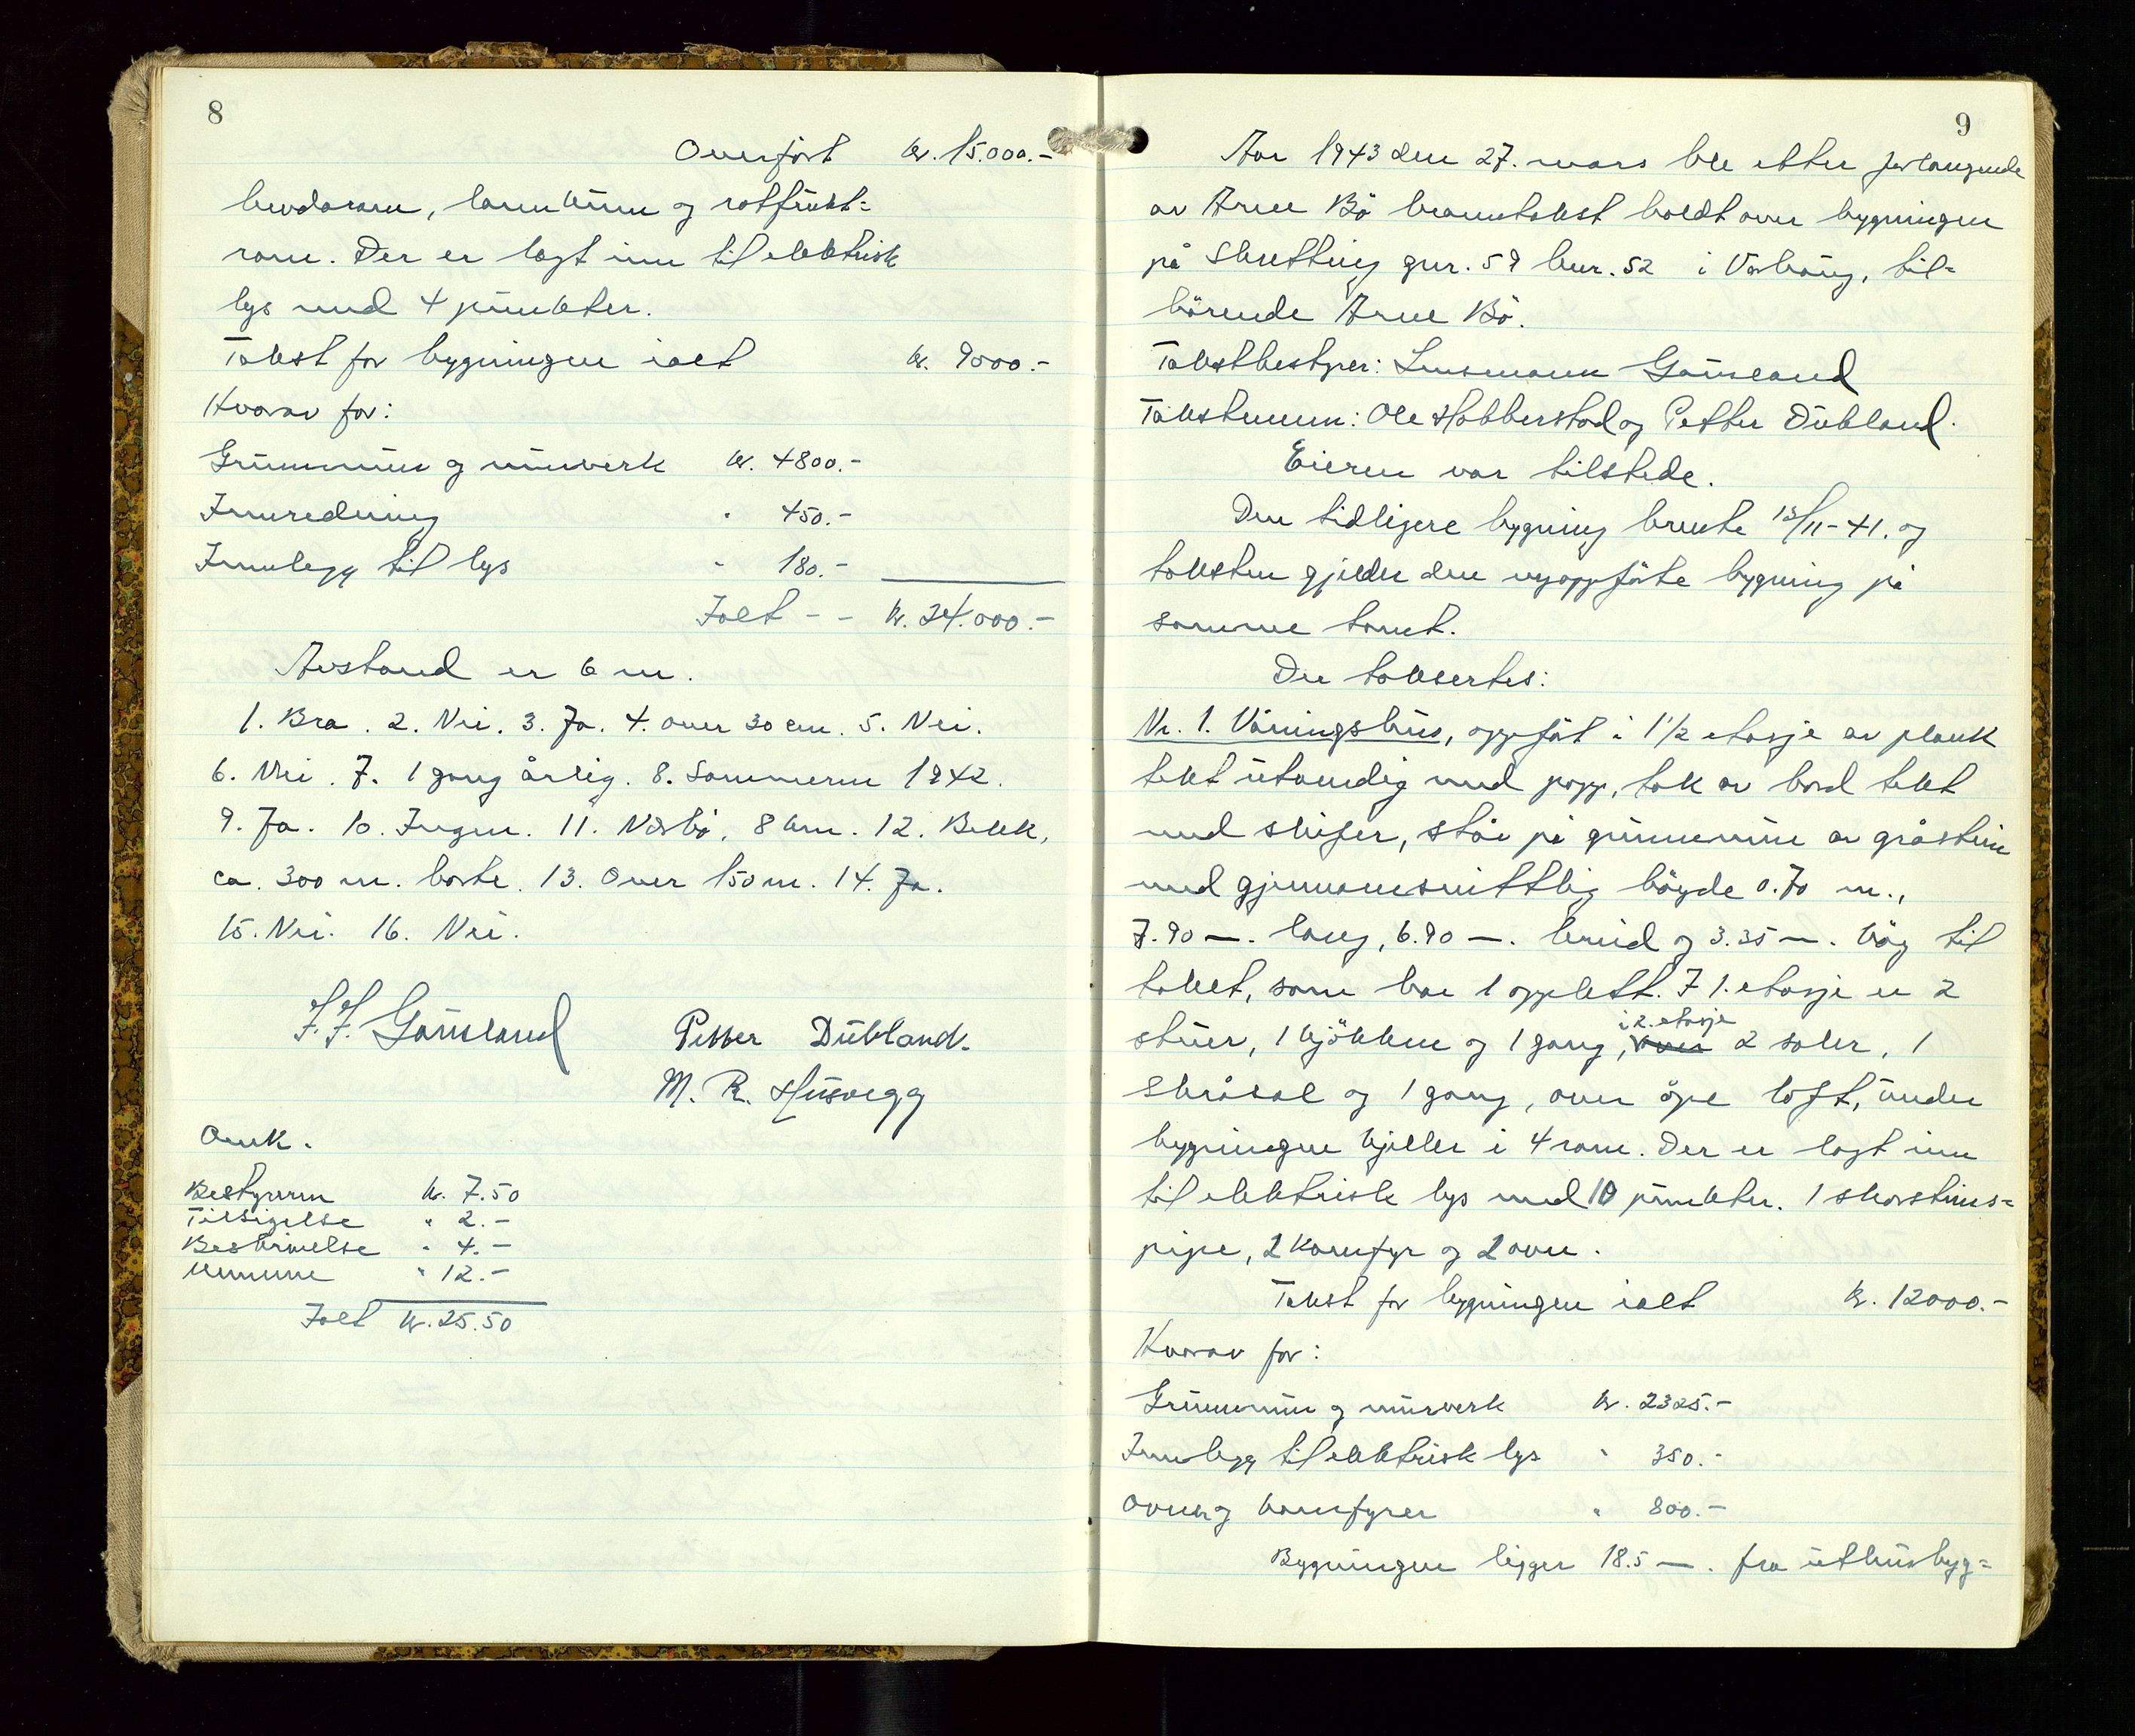 8
Overført kr. 15.000.-
redskaprom, lannkum og rotfrukt-
rom. Der er lagt inn til elektrisk
lys med 4 punkter.
Takst for bygningen ialt kr. 9000.-
Hvorav for:
Grunnmur og murverk kr. 4800.-
Innredning " 450.-
Innlegg til lys " 180.-
Ialt - - kr. 24.000.-
Avstand er 6 m.
1. Bra. 2. Nei. 3. Ja. 4. over 30 cm. 5. Nei.
6. Nei. 7. 1 gang årlig. 8. Sommeren 1942.
9. Ja. 10. Ingen. 11. Nærbø, 8 km. 12. Bekk,
ca. 300 m. borte. 13. Over 150 m. 14. Ja.
15. Nei. 16. Nei.
J. J. Gausland Petter Dubland.
M. R. Husvegg
Omk.
Bestyreren kr. 7.50
Tilsigelse " 2.-
Beskrivelse " 4.-
Mennene " 12.-
Ialt kr. 25.50
9
Aar 1943 den 27. mars ble etter forlangende
av Arne Bö branntakst holdt over bygningen
på Skretting gnr. 59 bnr. 52 i Varhaug, til-
hörende Arne Bö.
Takstbestyrer: Lensmann Gausland
Takstmenn: Ole Hobberstad og Petter Dubland.
Eieren var tilstede.
Den tidligere bygning brente 13/11-41. og
taksten gjelder den nyoppförte bygning på
samme tomt.
Der taksertes:
Nr. 1. Våningshus, oppfört i 1 1/2 etasje av plank
tekt utvendig med papp, tak av bord tekt
med skifer, står på grunnmur av gråstein
med gjennomsnittlig höyde 0.70 m.,
7.90 —. lang, 6.90 —. breid og 3.35 —. höy til
taket, som har 1 opplett. I 1. etasje er 2
stuer, 1 kjökken og 1 gang, i 2. etasje 2 saler, 1
skråsal og 1 gang, over åpe loft, under
bygningen kjeller i 4 rom. Der er lagt inn
til elektrisk lys med 10 punkter. 1 skorsteins-
pipe, 2 komfyr og 2 ovn.
Takst for bygningen ialt kr. 12000.-
Hvorav for:
Grunnmur og murverk kr. 2325.-
Innlegg til elektrisk lys " 350.-
Ovner og komfyrer " 800.-
Bygningen ligger 18.5 —. fra uthusbyg-